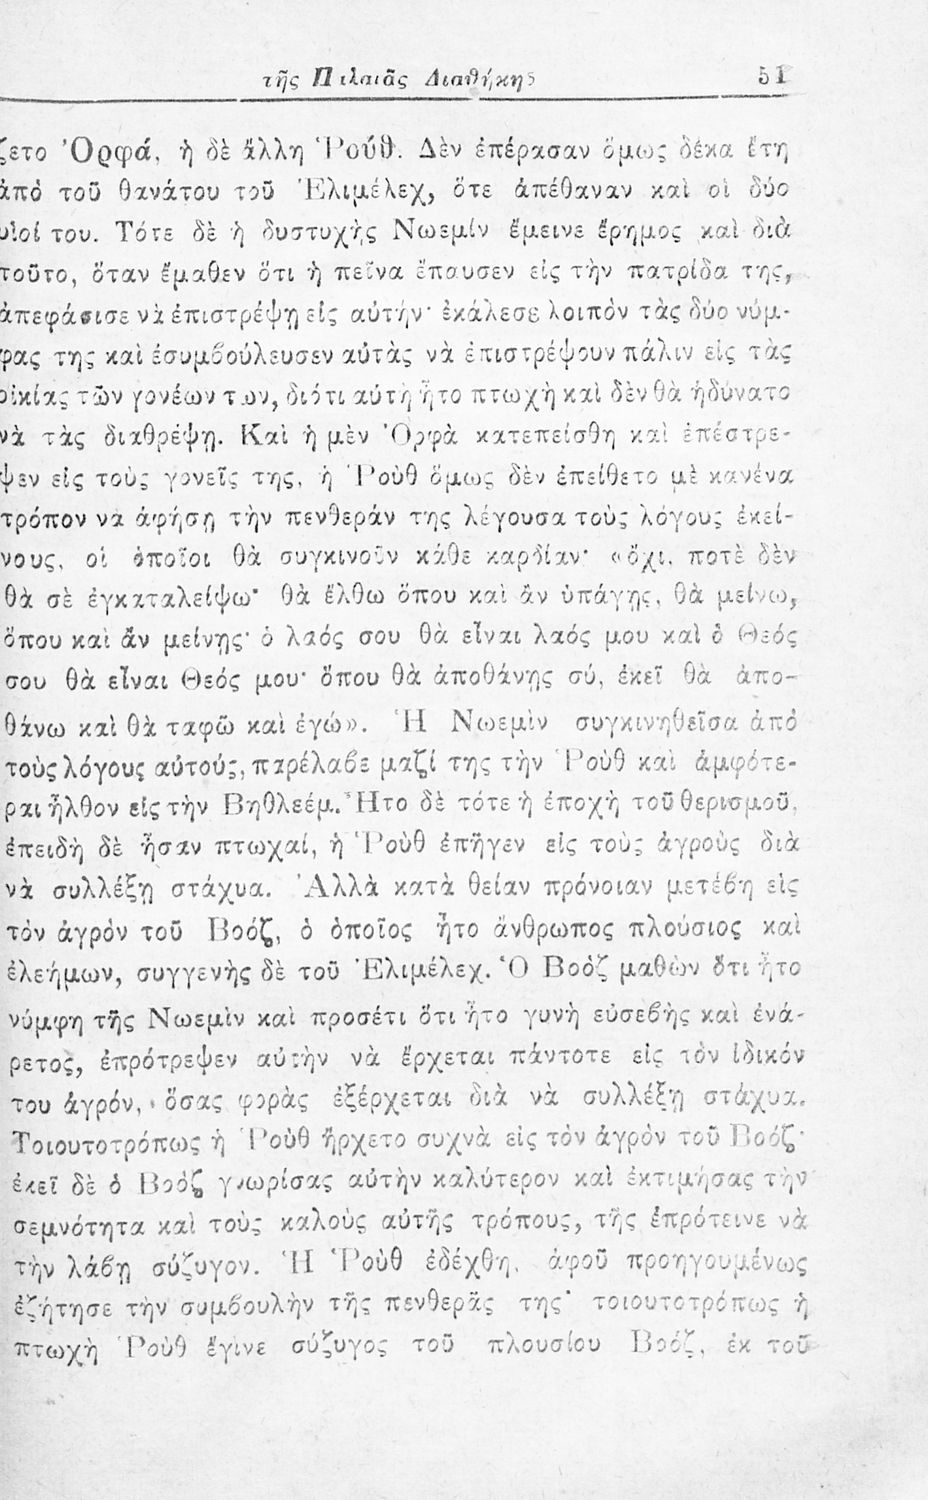 τῆς Παλαιᾶς Διαθήκης 51
ζετο Ὀρφά, ἡ δὲ ἄλλη Ῥούθ. Δὲν ἐπέρασαν ὅμως δέκα ἔτη
ἀπὸ τοῦ θανάτου τοῦ Ἐλιμέλεχ, ὅτε ἀπέθαναν καὶ οἱ δύο
υἱοί του. Τότε δὲ ἡ δυστυχὴς Νωεμίν ἔμεινε ἔρημος καὶ διὰ
τοῦτο, ὅταν ἔμαθεν ὅτι ἡ πεῖνα ἔπαυσεν εἰς τὴν πατρίδα της,
ἀπεφάσισε νὰ ἐπιστρέψῃ εἰς αὐτήν· ἐκάλεσε λοιπὸν τὰς δύο νύμ-
φας της καὶ ἐσυμβούλευσεν αὐτὰς νὰ ἐπιστρέψουν πάλιν εἰς τὰς
οἰκίας τῶν γονέων των, διότι αὐτὴ ἦτο πτωχὴ καὶ δὲν θὰ ἠδύνατο
νὰ τὰς διαθρέψῃ. Καὶ ἡ μὲν Ὀρφὰ κατεπείσθη καὶ ἐπέστρε-
ψεν εἰς τοὺς γονεῖς της, ἡ Ῥοὺθ ὅμως δὲν ἐπείθετο μὲ κανένα
τρόπον να ἀφήσῃ τὴν πενθεράν της λέγουσα τοὺς λόγους ἐκεί-
νους, οἱ ὁποῖοι θὰ συγκινοῦν κάθε καρδίαν· «ὄχι, ποτὲ δὲν
θὰ σὲ ἐγκαταλείψω· θὰ ἔλθω ὅπου καὶ ἂν ὑπάγῃς, θὰ μείνω,
ὅπου καὶ ἄν μείνῃς· ὁ λαός σου θὰ εἶναι λαός μου καὶ ὁ Θεός
σου θὰ εἶναι Θεός μου· ὅπου θὰ ἀποθάνῃς σύ, ἐκεῖ θὰ ἀπο-
θάνω καὶ θὰ ταφῶ καὶ ἐγώ». Ἡ Νωεμὶν συγκινηθεῖσα ἀπὸ
τοὺς λόγους αὐτούς, παρέλαβε μαζί της τὴν Ῥοὺθ καὶ ἀμφότε-
ραι ἦλθον εἰς τὴν Βηθλεέμ. Ἦτο δὲ τότε ἡ ἐποχὴ τοῦ θερισμοῦ,
ἐπειδὴ δὲ ἦσαν πτωχαί, ἡ Ῥοὺθ ἐπῆγεν εἰς τοὺς ἀγροὺς διὰ
νὰ συλλέξῃ στάχυα. Ἀλλὰ κατὰ θείαν πρόνοιαν μετέβη εἰς
τὸν ἀγρὸν τοῦ Βοόζ, ὁ ὁποῖος ἦτο ἄνθρωπος πλούσιος καὶ
ἐλεήμων, συγγενὴς δὲ τοῦ Ἐλιμέλεχ. Ὁ Βοὸζ μαθὼν ὅτι ἦτο
νύμφη τῆς Νωεμὶν καὶ προσέτι ὅτι ἦτο γυνὴ εὐσεβὴς καὶ ἐνά-
ρετος, ἐπρότρεψεν αὐτὴν νὰ ἔρχεται πάντοτε εἰς τὸν ἰδικόν
του ἀγρόν, ὅσας φορὰς ἐξέρχεται διὰ νὰ συλλέξῃ στάχυα.
Τοιουτοτρόπως ἡ Ῥοὺθ ἤρχετο συχνὰ εἰς τὸν ἀγρὸν τοῦ Βοόζ·
ἐκεῖ δὲ ὁ Βοὸζ γνωρίσας αὐτὴν καλύτερον καὶ ἐκτιμήσας τὴν
σεμνότητα καὶ τοὺς καλοὺς αὐτῆς τρόπους, τῆς ἐπρότεινε νὰ
τὴν λάβῃ σύζυγον. Ἡ Ῥοὺθ ἐδέχθη, ἀφοῦ προηγουμένως
ἐζήτησε τὴν συμβουλὴν τῆς πενθερᾶς της· τοιουτοτρόπως ἡ
πτωχὴ Ῥοὺθ ἔγινε σύζυγος τοῦ πλουσίου Βοόζ, ἐκ τοῦ